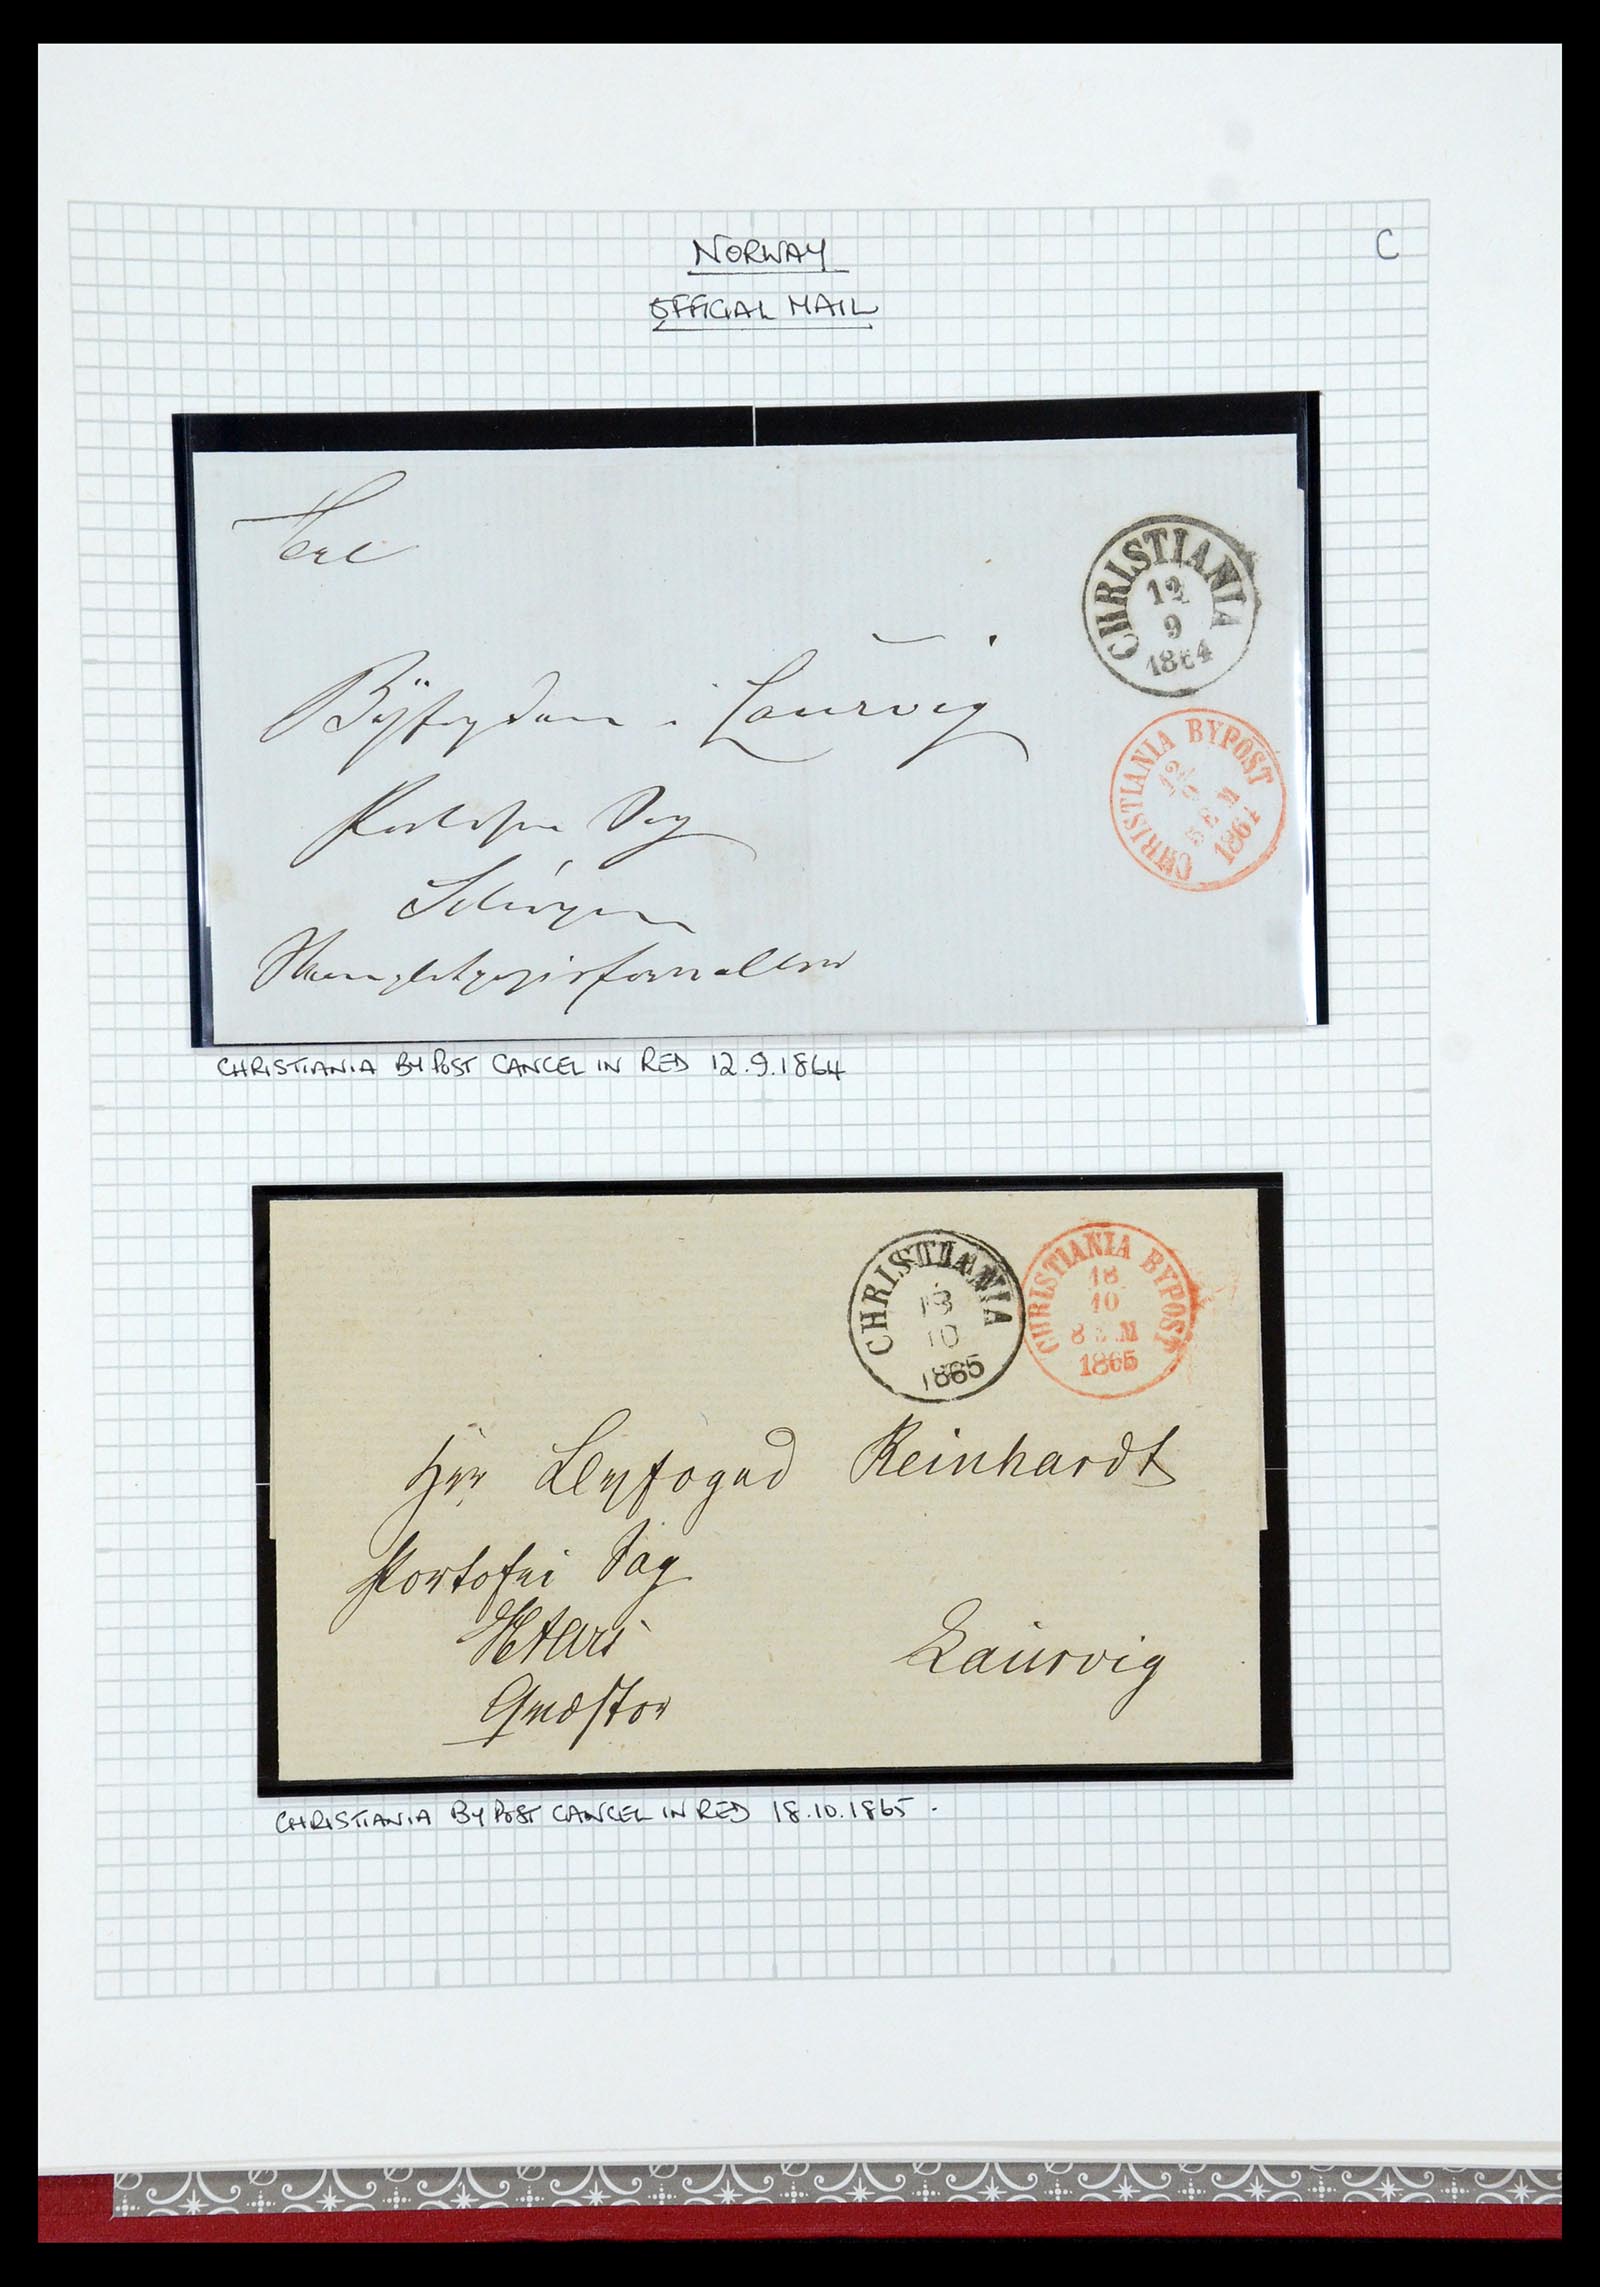 NORWAY
C
OFFICIAL MAIL
CHRISTIANIA
12
9
1864
Byfogden i Laurvig
CHRISTIANIA BYPOST
1864
Portofri Sag
CHRISTIANIA BYPOST CANCEL IN RED 12.9.1864
CHRISTIANIA
18
10
1865
CHRISTIANIA BYPOST
18
10
8 E.M
1865
Hrr Byfoged Reinhardt
Portofri Sag
Laurvig
Qvæstor
CHRISTIANIA BYPOST CANCEL IN RED 18.10.1865.